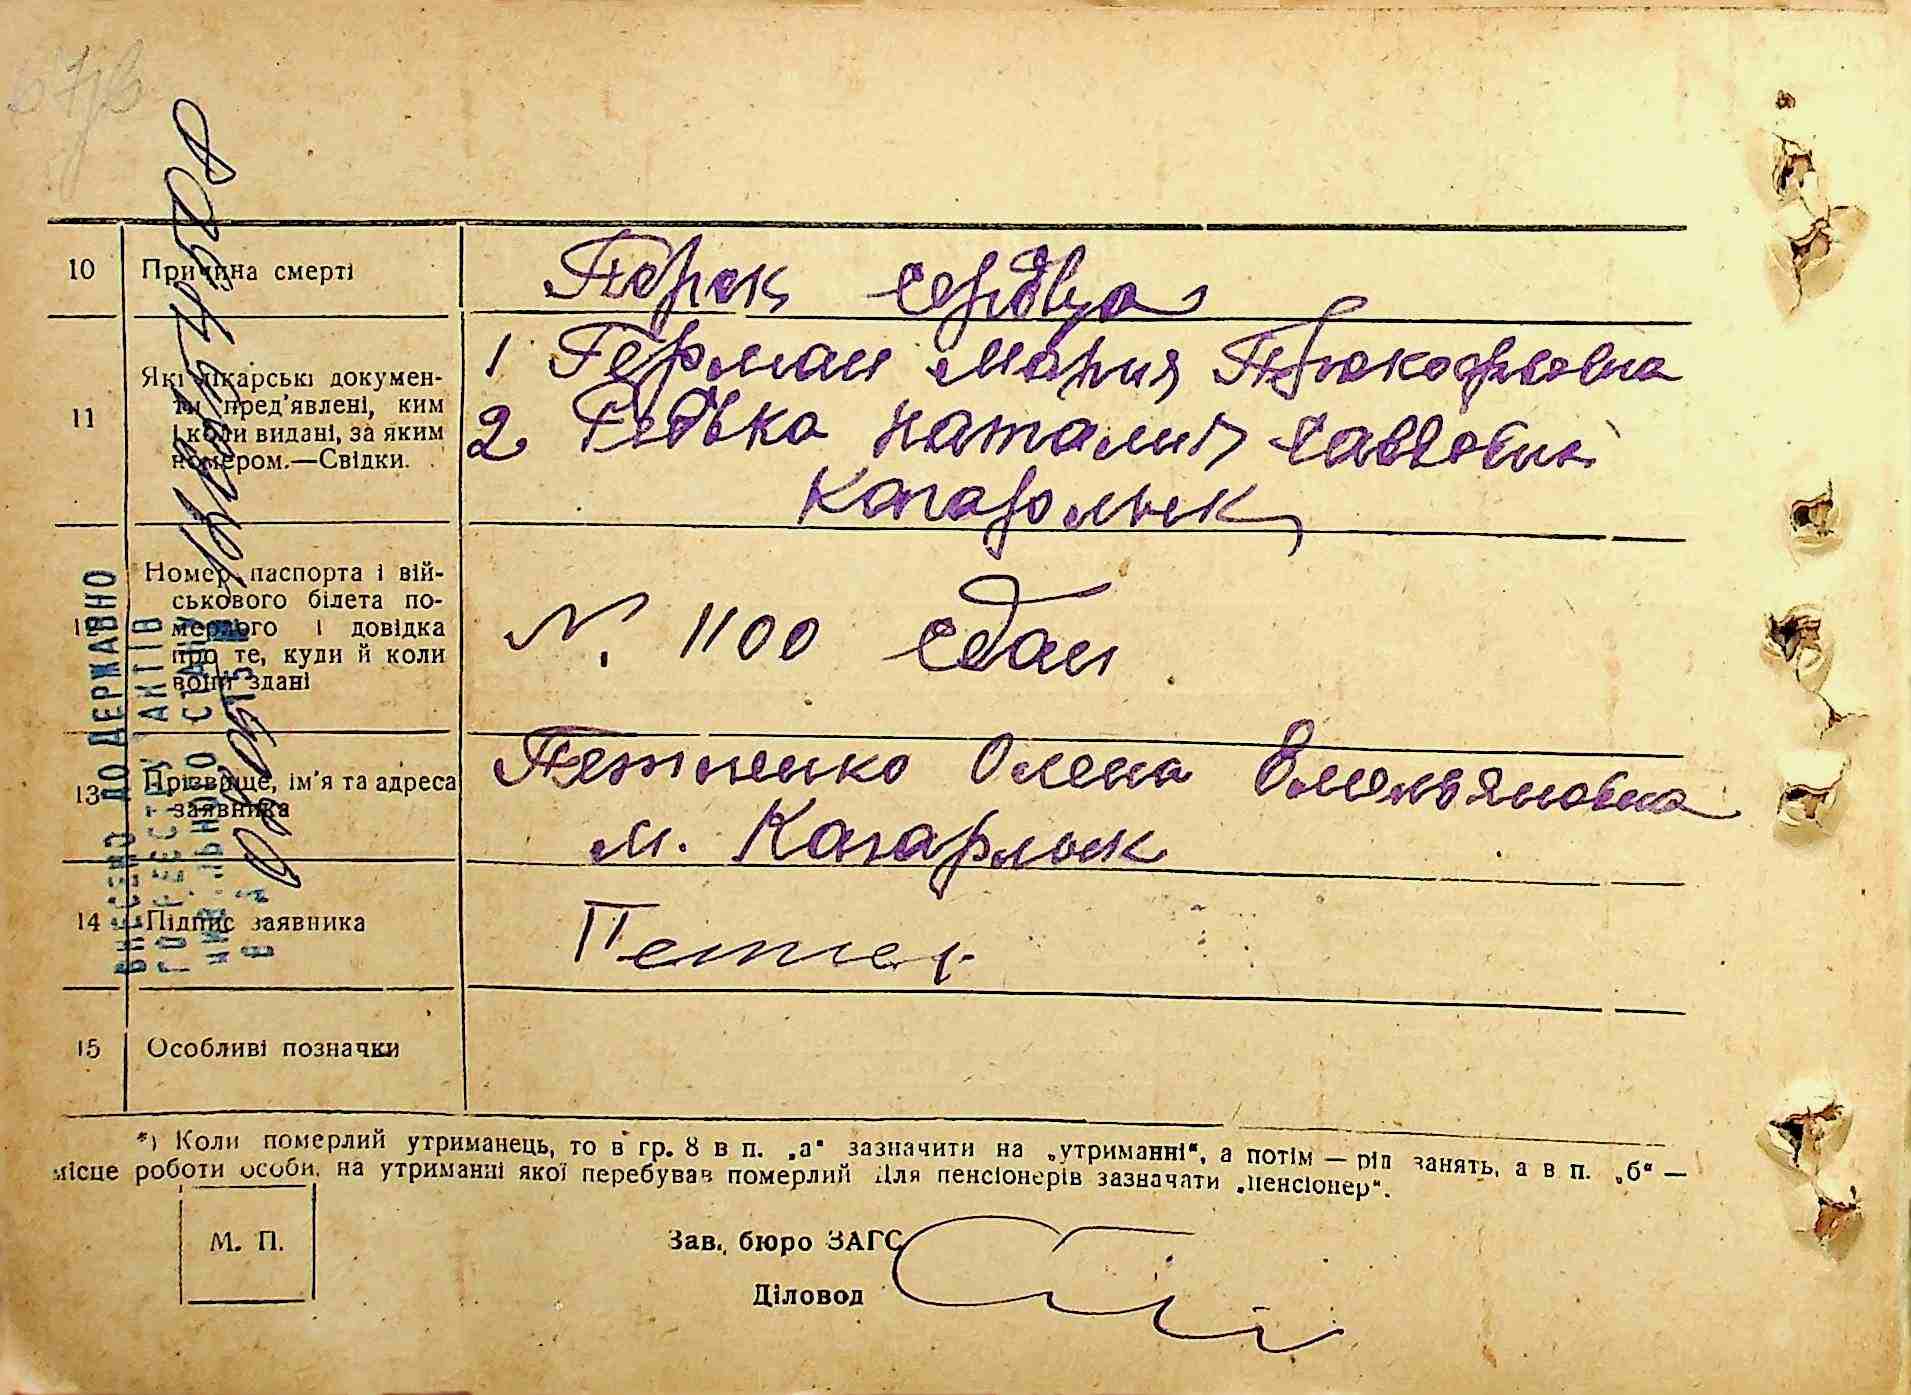 10 Причина смерті Порок сердца
11 Які лікарські докумен-
ти пред'явлені, ким
і коли видані, за яким
номером.—Свідки.
1 Герман Мария Прокофьевна
2 Редька Наталия Саввовна
Кагарлык
12 Номер паспорта і вій-
ськового білета по-
мерлого і довідка
про те, куди й коли
вони здані
N. 1100 сдан
13 Прізвище, ім'я та адреса
заявника
Петренко Олена Емельяновна
м. Кагарлык
14 Підпис заявника
15 Особливі позначки
*) Коли померлий утриманець, то в гр. 8 в п. „а“ зазначити на „утриманні“, а потім — рід занять, а в п. „б“ —
місце роботи особи, на утриманні якої перебував померлий Для пенсіонерів зазначати „пенсіонер“.
М. П.
Зав. бюро ЗАГС
Діловод
ВНЕСЕНО ДО ДЕРЖАВНО
ГО РЕЄСТРУ АКТІВ
ЦИВІЛЬНОГО СТАНУ